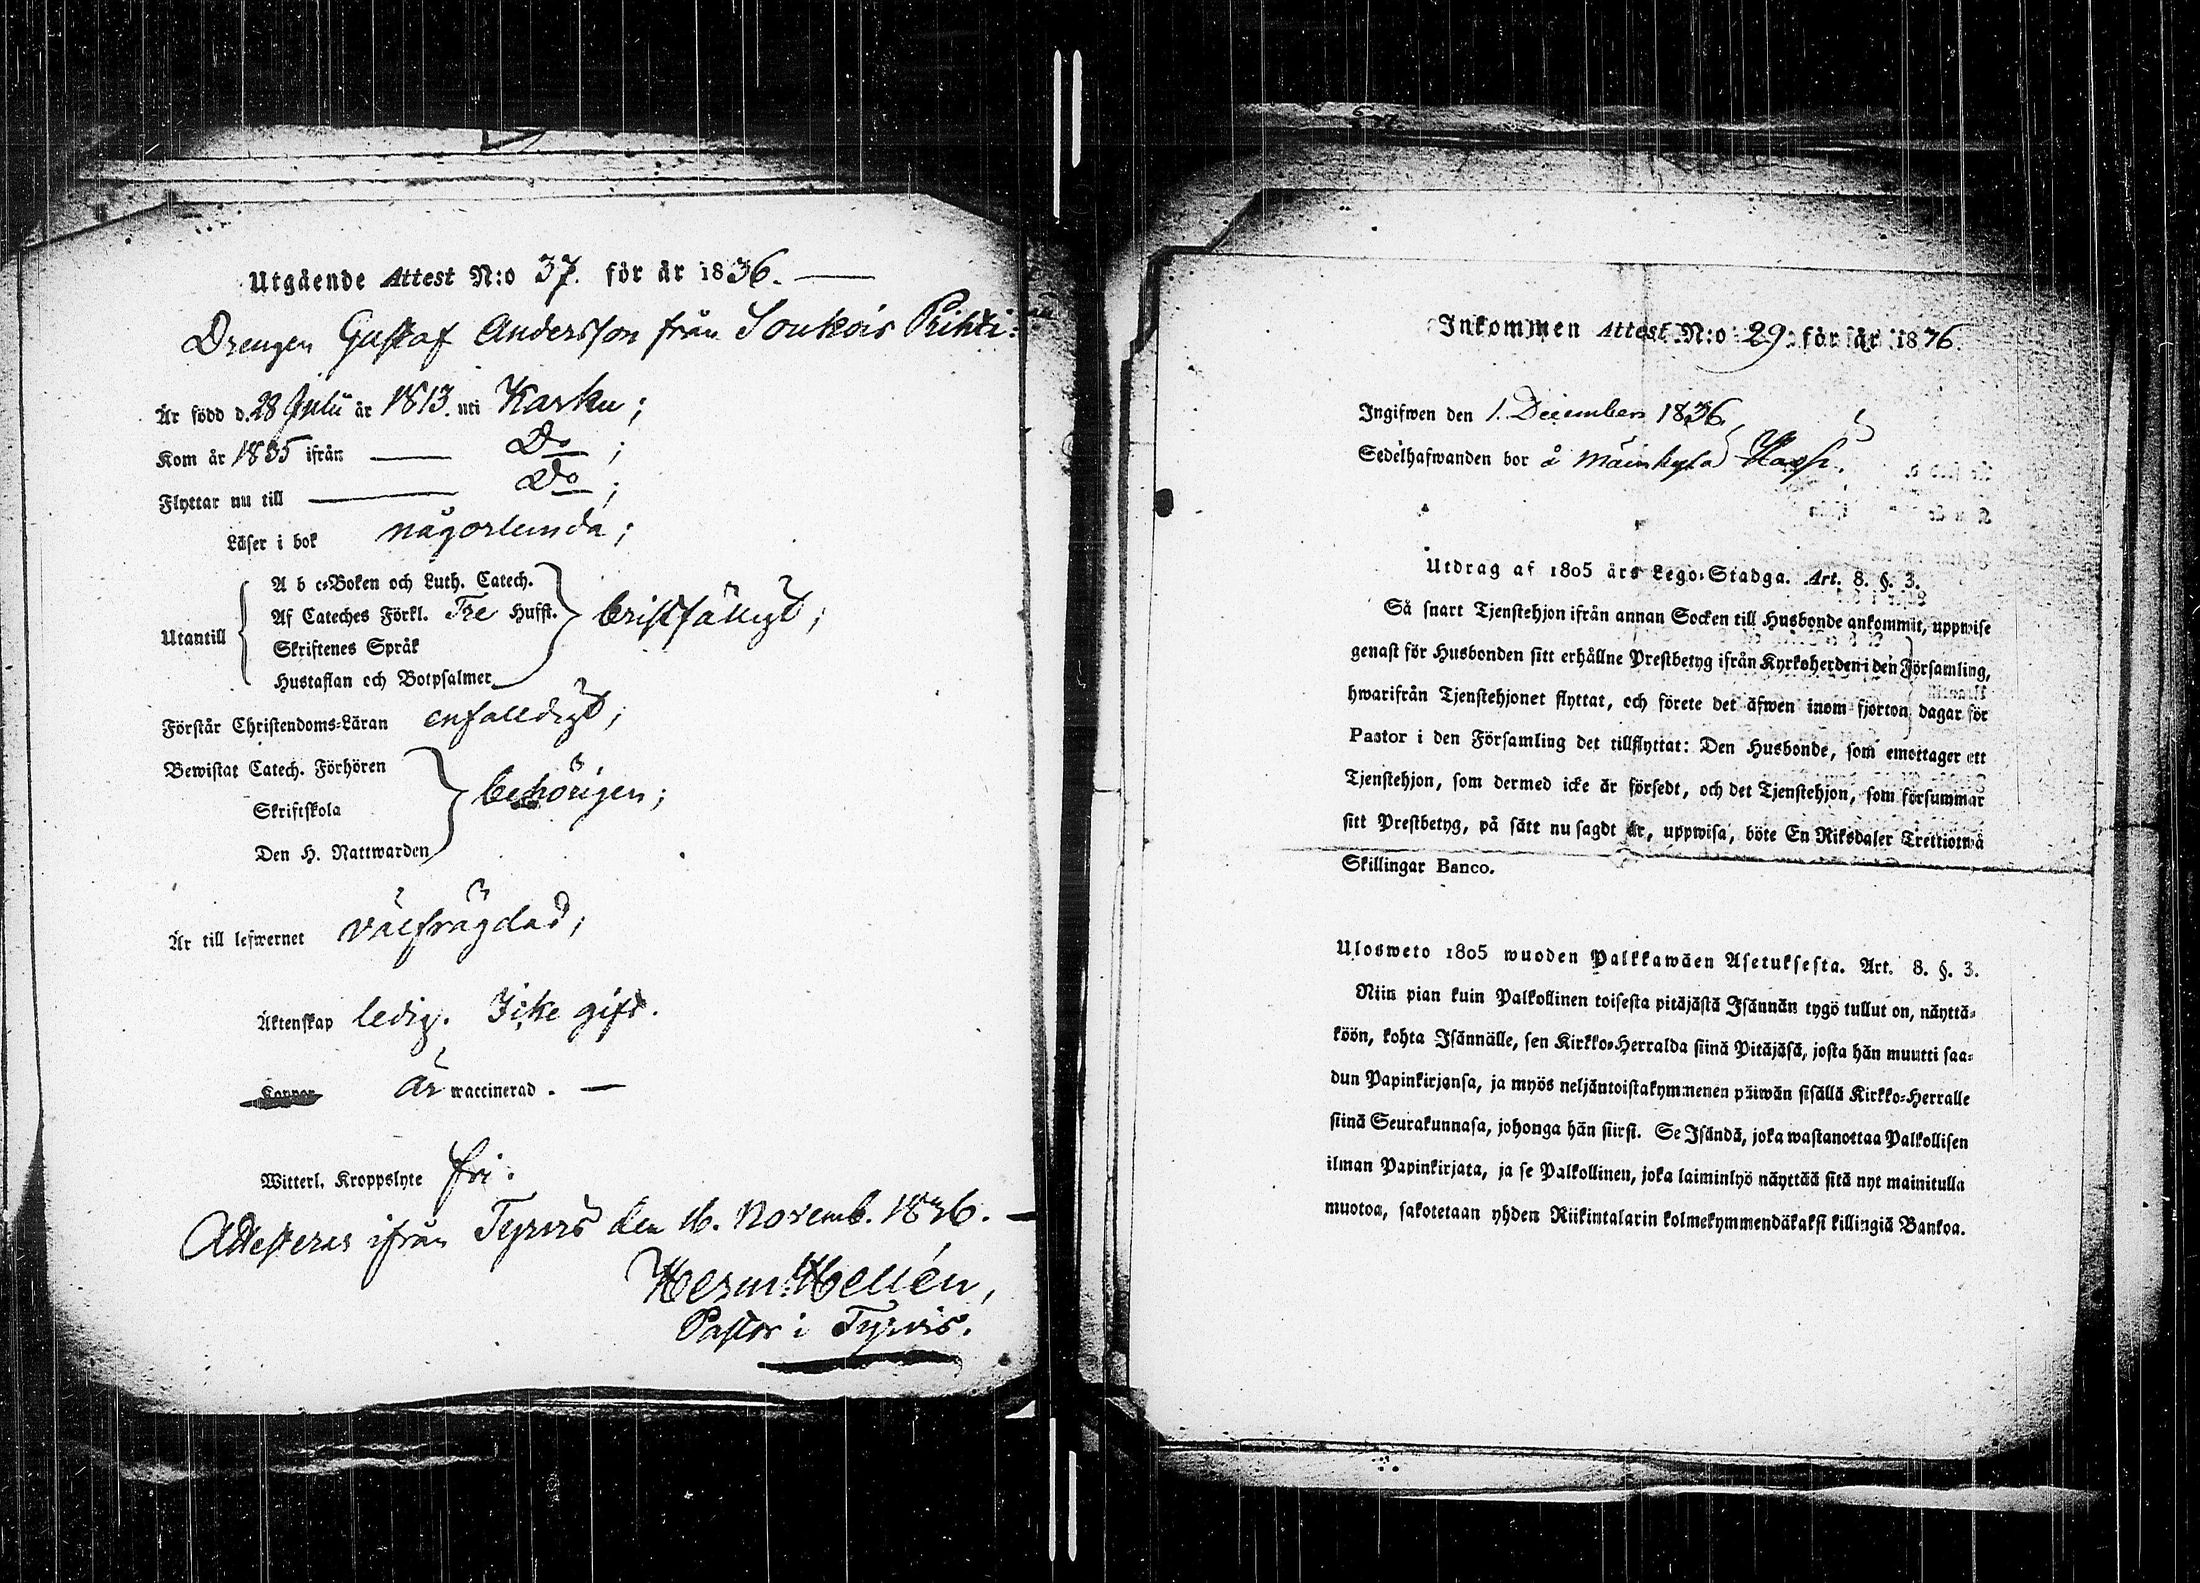 Utgående Attest N:o 37. för år 1836. —
Drengen Gustaf Andersson från Soukois Prihti:
Är född d. 28 Julii år 1813. uti Karku;
Kom år 1835 ifrån — Do;
Flyttar nu till — Do;
Läser i bok någorlunda;
A b c-Boken och Luth. Catech.
Af Cateches Förkl. Tre Hufst.
Utantill bristfälligt;
Skriftenes Språk
Hustaflan och Botpsalmer
Förstår Christendoms-Läran enfalldigt;
Bewistat Catech. Förhören
Skriftskola behörigen;
Den H. Nattwarden
Är till lefwernet välfrägdad;
Äktenskap ledig. Icke gift.
Koppor är waccinerad. —
Witterl. Kroppslyte fri.
Attesteras ifrån Tyrvis den 16. Novemb. 1836. —
Herm: Hellén,
Pastor i Tyrvis.
Inkommen Attest N:o 29 för år 1836.
Ingifwen den 1. December 1836.
Sedelhafwanden bor å Mäinkylä
Utdrag af 1805 års Lego-Stadga. Art. 8. §. 3.
Så snart Tjenstehjon ifrån annan Socken till Husbonde ankommit, uppwise
genast för Husbonden sitt erhållne Prestbetyg ifrån Kyrkoherden i den Församling,
hwarifrån Tjenstehjonet flyttat, och förete det äfwen inom fjorton dagar för
Pastor i den Församling det tillflyttat: Den Husbonde, som emottager ett
Tjenstehjon, som dermed icke är försedt, och det Tjenstehjon, som försummar
sitt Prestbetyg, på sätt nu sagdt är, uppwisa, böte En Riksdaler Trettiotwå
Skillingar Banco.
Ulosweto 1805 wuoden Palkkawäen Asetuksesta. Art. 8. §. 3.
Niin pian kuin Palkollinen toisesta pitäjästä Isännän tygö tullut on, näyttä-
köön, kohta Isännälle, sen Kirkko-Herralda siinä Pitäjäsä, josta hän muutti saa-
dun Papinkirjansa, ja myös neljäntoistakymmenen päiwän sisällä Kirkko-Herralle
siinä Seurakunnasa, johonga hän siirsi. Se Isändä, joka wastanottaa Palkollisen
ilman Papinkirjata, ja se Palkollinen, joka laiminlyö näyttää sitä nyt mainitulla
muotoa, sakotetaan yhden Riikintalarin kolmekymmendäkaksi killingiä Bankoa.